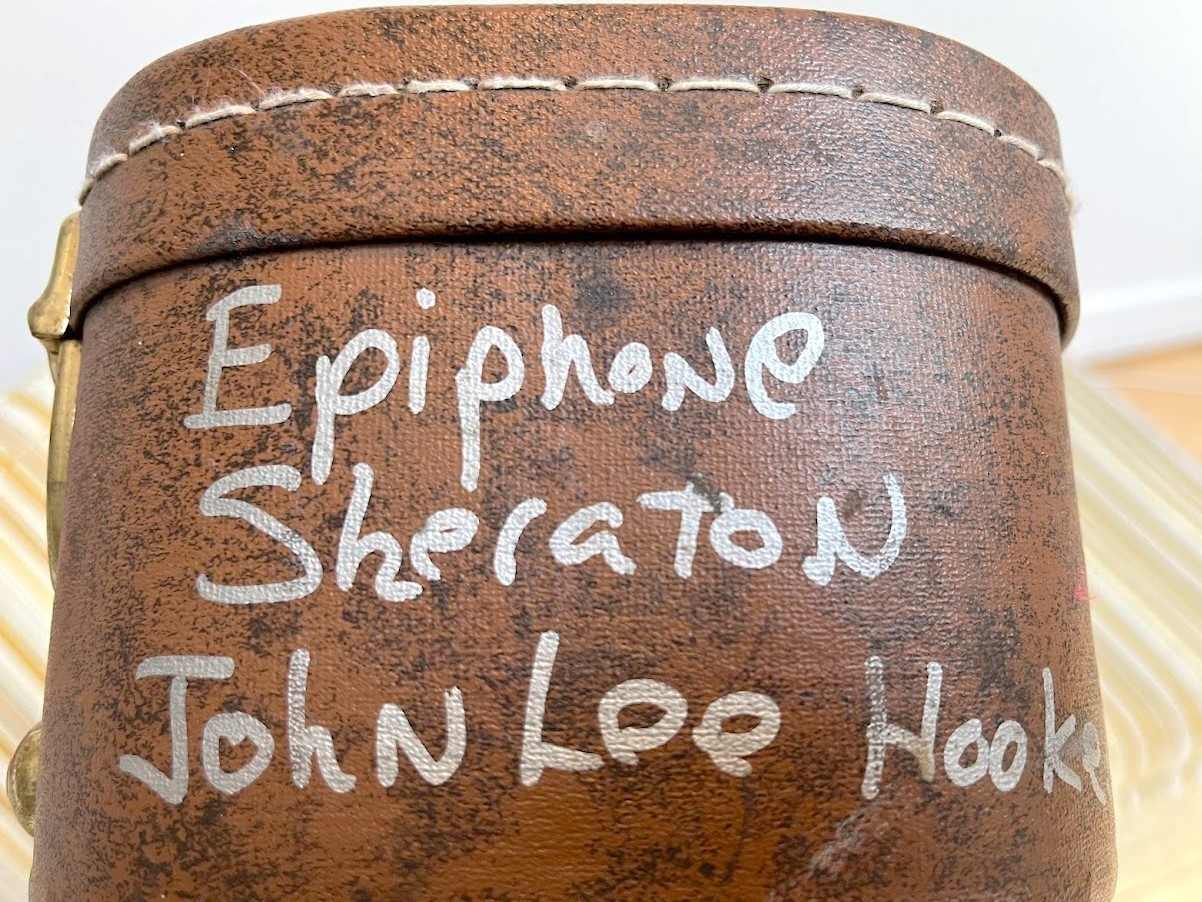 Epiphone
Sheraton
John Lee Hooke